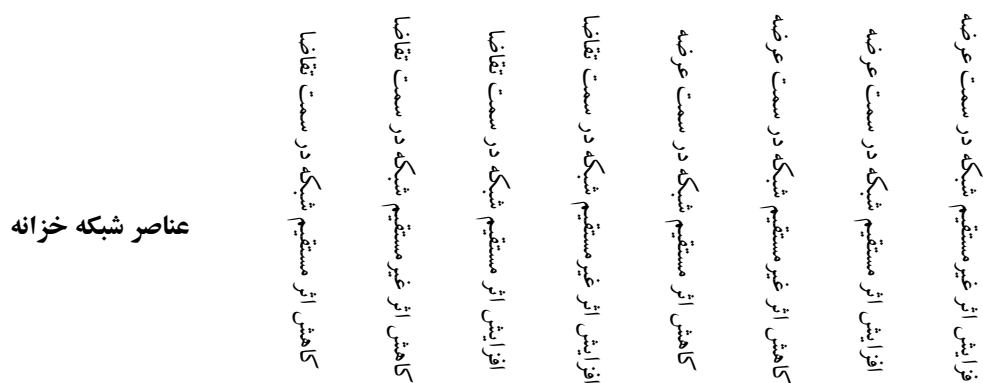 عناصر شبکه خزانه
کاهش اثر مستقیم شبکه در سمت تقاضا
کاهش اثر غیرمستقیم شبکه در سمت تقاضا
افزایش اثر مستقیم شبکه در سمت تقاضا
افزایش اثر غیرمستقیم شبکه در سمت تقاضا
کاهش اثر مستقیم شبکه در سمت عرضه
کاهش اثر غیرمستقیم شبکه در سمت عرضه
افزایش اثر مستقیم شبکه در سمت عرضه
فزایش اثر غیرمستقیم شبکه در سمت عرضه